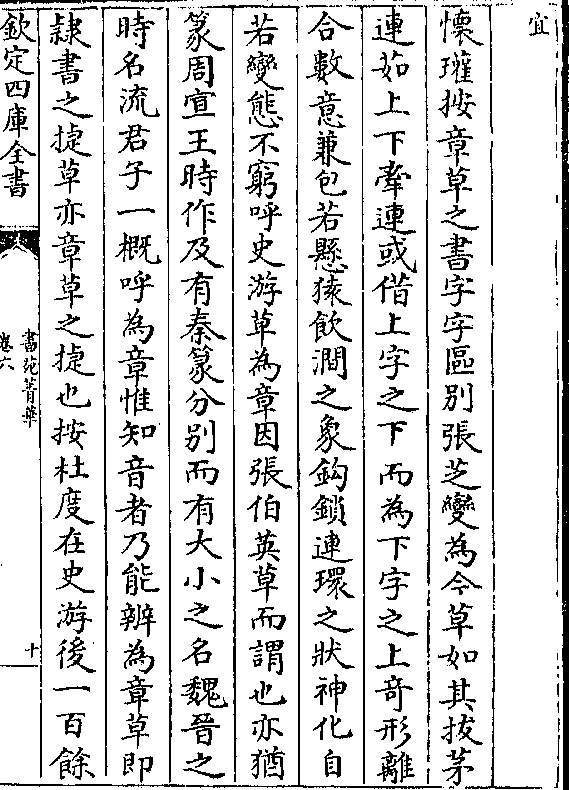 宜
懷瓘按章草之書字字區別張芝變為今草如其拔茅
連茹上下牽連或借上字之下而為下字之上奇形離
合數意兼包若懸猿飲澗之象鈎鎖連環之狀神化自
若變態不窮呼史游草為章因張伯英草而謂也亦猶
篆周宣王時作及有秦篆分别而有大小之名魏晉之
時名流君子一概呼為章惟知音者乃能辨為章草即
隸書之捷草亦章草之捷也按杜度在史游後一百餘
欽定四庫全書
書苑菁華
卷六
十